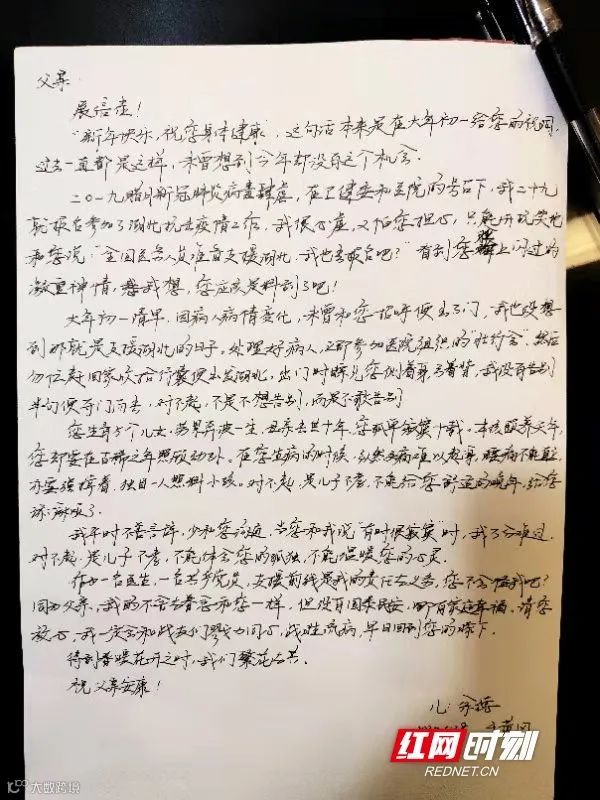 父亲
展信佳！
“新年快乐，祝您身体健康”，这句话本来是在大年初一给您的祝词，
过去一直都是这样，未曾想到今年却没有这个机会。
二〇一九腊月新冠肺炎病毒肆虐，在卫健委和医院的号召下，我二十九
就报名参加了湖北抗击疫情工作，我很心虚，又怕您担心，只能用玩笑地
和您说：“全国医务人员准备支援湖北，我也去报名吧？”看到您脸上闪过的
凝重神情，想您应该是料到了吧！
大年初一清早，因病人病情变化，未曾和您招呼便出了门，我也没想
到那就是支援湖北的日子。处理好病人，立即参加医院组织的“壮行会”，然后
匆匆赶回家收拾行囊便出发湖北，出门时瞟见您侧着身弓着背，我没有告别
半句便夺门而去，对不起，不是不想告别，而是不敢告别
您生育5个儿女，劳累奔波一生，且亲去世十年，您孤单寂寞十载。本该颐养天年，
您却要在古稀之年照顾幼孙。在您生病的时候，纵然
亦要强撑着，独自一人照料小孩。对不起，是儿子不孝，不能给您舒适的晚年，给您
添麻烦了。
我平时不善言辞，少和您谈心，当您和我说“有时很寂寞”时，我万分难过，
对不起，是儿子不孝，不能体会您的孤独，不能温暖您的心灵。
作为一名医生，一名共产党员，支援前线是我的责任与义务，您不会怪我吧？
同为父亲，我的不舍与眷恋和您一样，但没有国泰民安，哪有家庭幸福。请您
放心，我一定会和战友们勠力同心，战胜病，早日回到您的膝下。
待到春暖花开之时，我们繁花与共。
祝父亲安康！
儿：
红网时刻
REDNET.CN
大数跨境